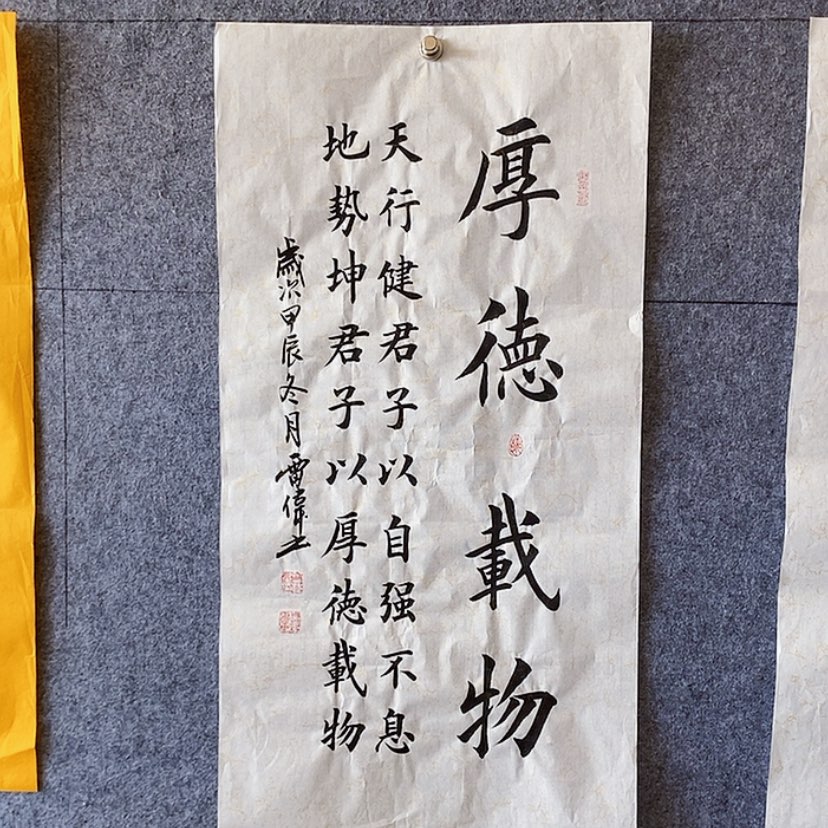 厚德載物
天行健君子以自强不息
地势坤君子以厚德載物
歲次甲辰冬月雷偉